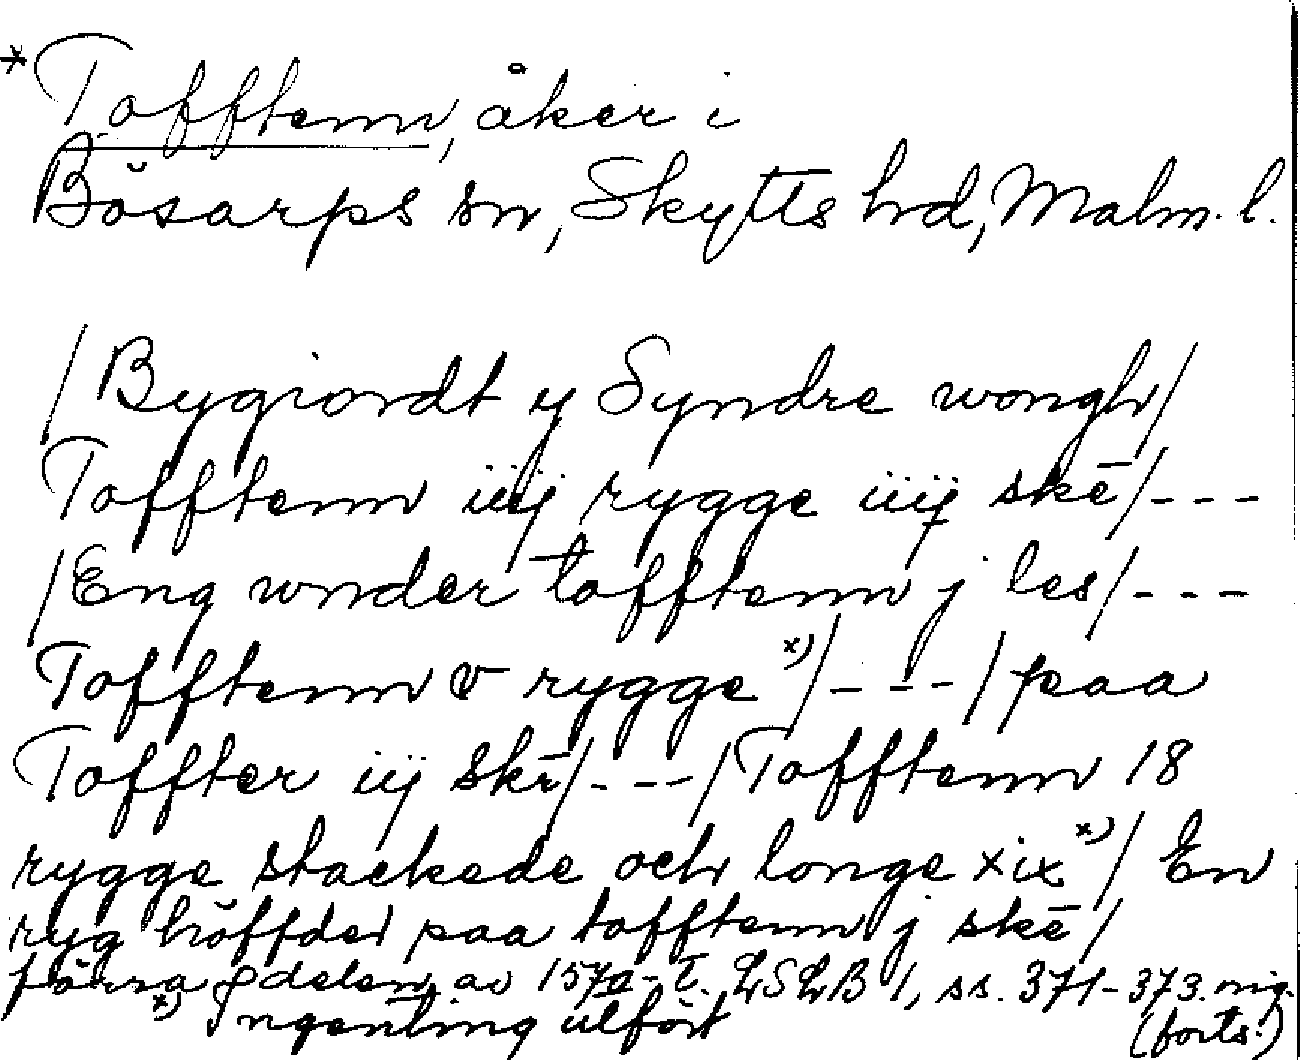 * Tofftenn, åker i
Bösarps sn, Skytts hd, Malm. l.
/Bygiordt y Syndre wongh/
Tofftenn iiij rygge iiij skē/---
/Eng wnder tofftenn j les/---
Tofftenn v rygge x)/---/paa
Toffter iij skē/---/Tofftenn 18
rygge stackede och longe xix x)/ En
ryg höffded paa tofftenn j skē/
förra delen av 1570-t. LSLB 1, ss. 371-373.
x) Ingenting utfört (forts.)